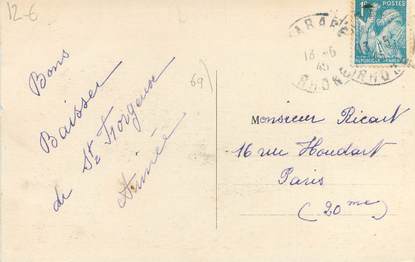 12-6
Bons
Baisser
de St Forgeux
Aimée
69
POSTES
REPUBLIQUE FRANÇAISE
13 -6
45
RHONE
Monsieur Ricart
16 rue Houdart
Paris
(20me)